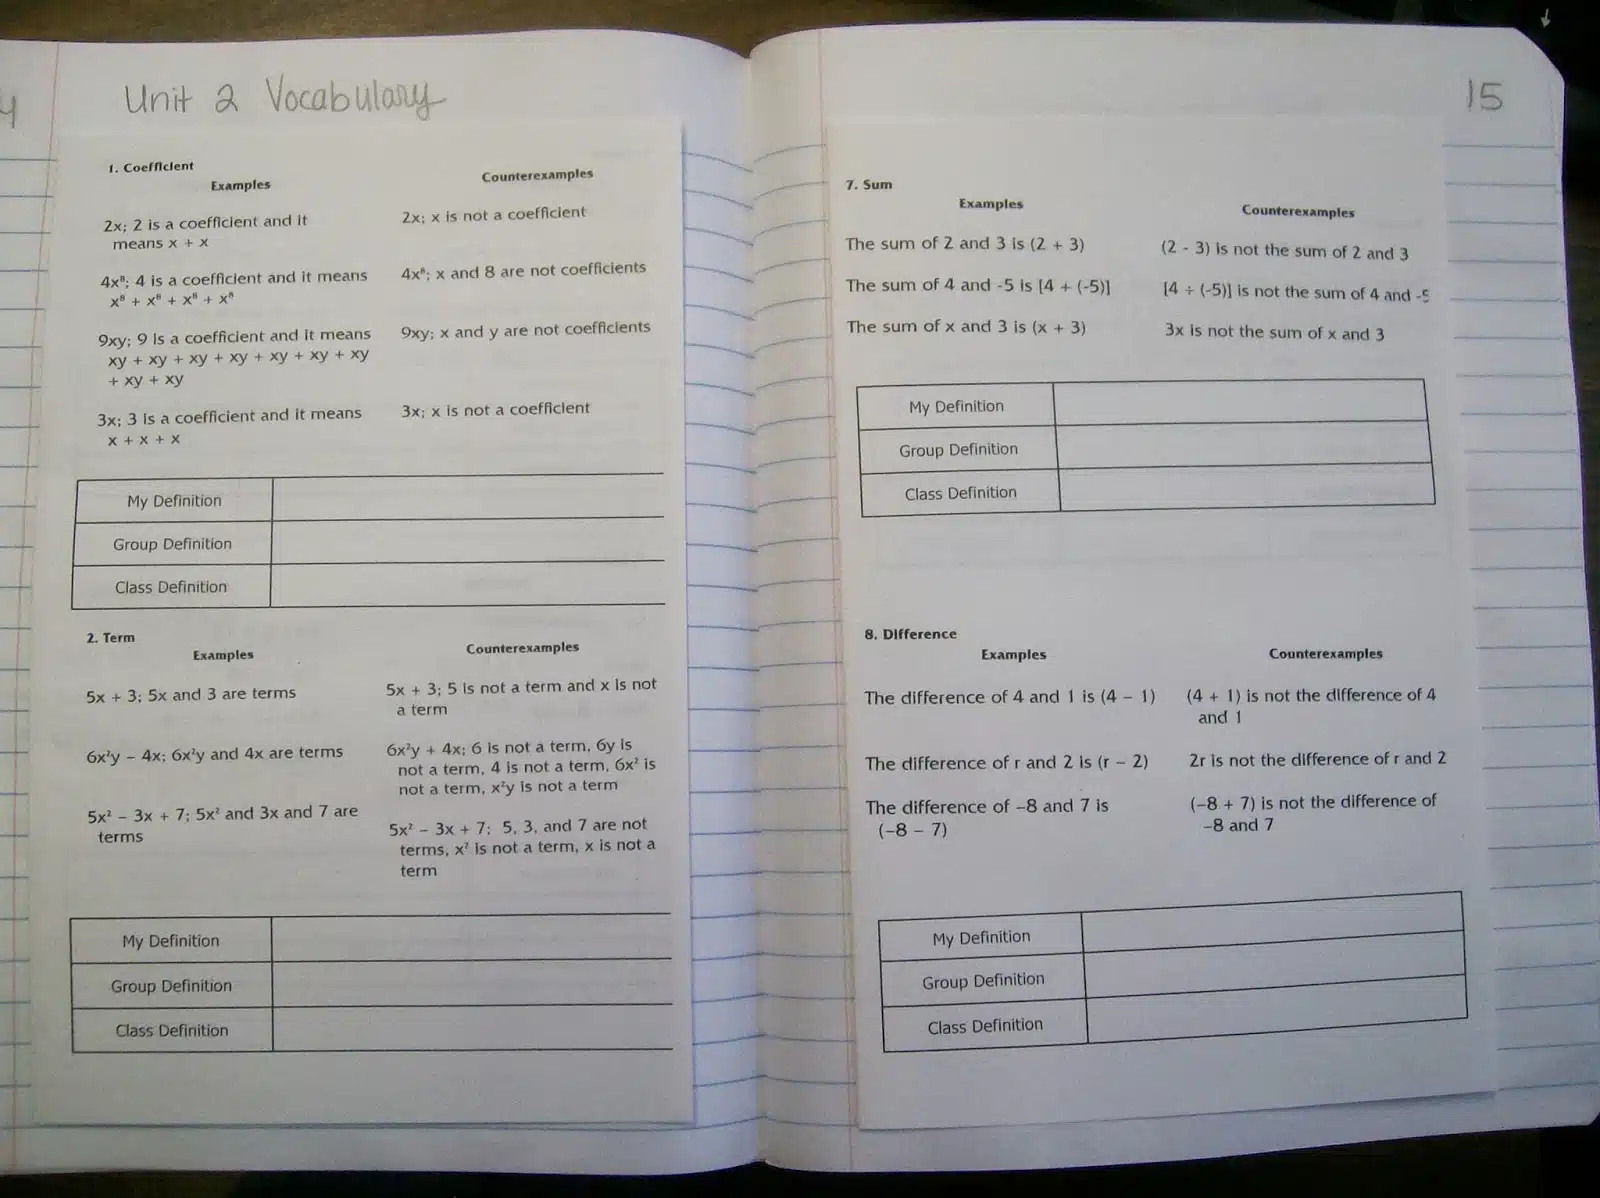 Unit 2 Vocabulary
1. Coefficient
Examples
Counterexamples
2x; 2 is a coefficient and it
means x + x
2x; x is not a coefficient
4x⁸; 4 is a coefficient and it means
x⁸ + x⁸ + x⁸ + x⁸
4x⁸; x and 8 are not coefficients
9xy; 9 is a coefficient and it means
xy + xy + xy + xy + xy + xy + xy
+ xy + xy
9xy; x and y are not coefficients
3x; 3 is a coefficient and it means
x + x + x
3x; x is not a coefficient
My Definition
Group Definition
Class Definition
2. Term
Examples
Counterexamples
5x + 3; 5x and 3 are terms
5x + 3; 5 is not a term and x is not
a term
6x²y – 4x; 6x²y and 4x are terms
6x²y + 4x; 6 is not a term, 6y is
not a term, 4 is not a term, 6x² is
not a term, x²y is not a term
5x² – 3x + 7; 5x² and 3x and 7 are
terms
5x² – 3x + 7; 5, 3, and 7 are not
terms, x² is not a term, x is not a
term
My Definition
Group Definition
Class Definition
15
7. Sum
Examples
Counterexamples
The sum of 2 and 3 is (2 + 3)
(2 - 3) is not the sum of 2 and 3
The sum of 4 and -5 is [4 + (-5)]
[4 ÷ (-5)] is not the sum of 4 and -5
The sum of x and 3 is (x + 3)
3x is not the sum of x and 3
My Definition
Group Definition
Class Definition
8. Difference
Examples
Counterexamples
The difference of 4 and 1 is (4 – 1)
(4 + 1) is not the difference of 4
and 1
The difference of r and 2 is (r – 2)
2r is not the difference of r and 2
The difference of –8 and 7 is
(–8 – 7)
(–8 + 7) is not the difference of
–8 and 7
My Definition
Group Definition
Class Definition